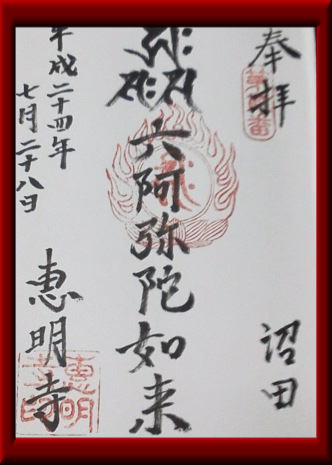 奉拝
沼田
六阿弥陀如来
平成二十四年
七月二十八日
恵明寺